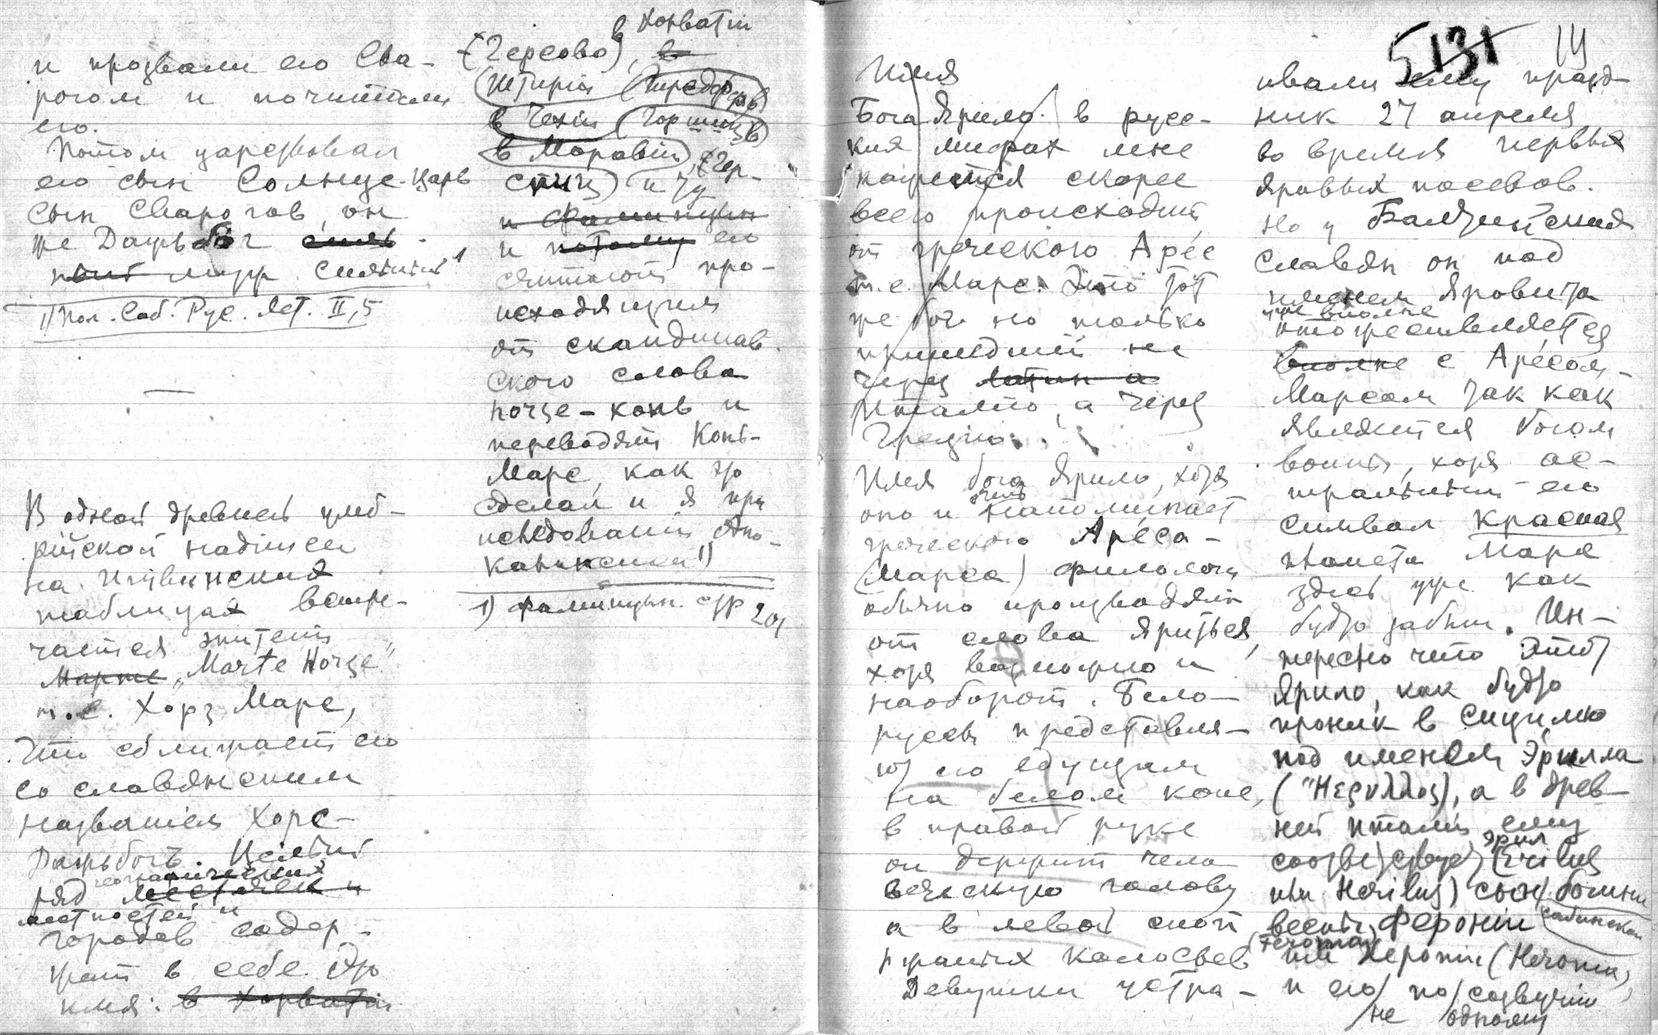 и прозвали его Сва-
рогом и почитали
его.
Потом царствовал
его сын Солнце-царь
сын Сварогов, он
же Дажьбог
1) Пол. Соб. Рус. Лет. II, 5
В одной древней умб-
рийской надписи
на Игувинских
таблицах встре-
чается эпитет
Марте „Marte Horse"
т.е. Хорз Марс,
Что сближает его
со славянским
названием Хорс-
Дажьбогъ. Целый
ряд географических
местностей и
городов содер-
жат в себе это
имя: в Хорватии
в Хорватии
(Черсово), в
в Чехии
в Моравии
и его
считают про-
исходящим
от скандинав-
ского слова
horse - конь и
переводят Конь-
Марс, как это
сделал и я при
исследовании Апо-
калипсиса 1)
1) Фаминцын. стр 201
5131 14
Имя
Бога Ярило в русс-
ких мифах мне
кажется скорее
всего происходит
от греческого Арес
т.е. Марс. Это тот
же бог но только
пришедший не
через Латин а
Италию, а через
Грецию.
Имя бога Ярило, хотя
оно и очень напоминает
греческого Ареса-
(Марса) филологи
обычно производили
от слова яриться,
хотя возможно и
наоборот. Бело-
руссы представля-
ют его едущим
на белом коне,
в правой руке
он держит чело-
веческую голову
а в левой сноп
ржаных колосьев
Девушки устра-
ивали ему празд-
ник 27 апреля
во время первых
яровых посевов.
Но у Балтийских
славян он под
именем Яровита
уже вполне
отожествляется
вполне с Аресом-
Марсом так как
является богом
войны, хотя ас-
тральный его
символ красная
планета Марс
здесь уже как
будто забыт. Ин-
тересно что этот
Ярило, как будто
проник в Сицилию
под именем Эрилла
("Ηερυλλος), а в древ-
ней Италии ему
соответствует Эрил (Erilus
или Herilus) сын богини
весны Феронии сабинской
(Feronia) или Херонии (Heronia)
и его по созвучию
не одному